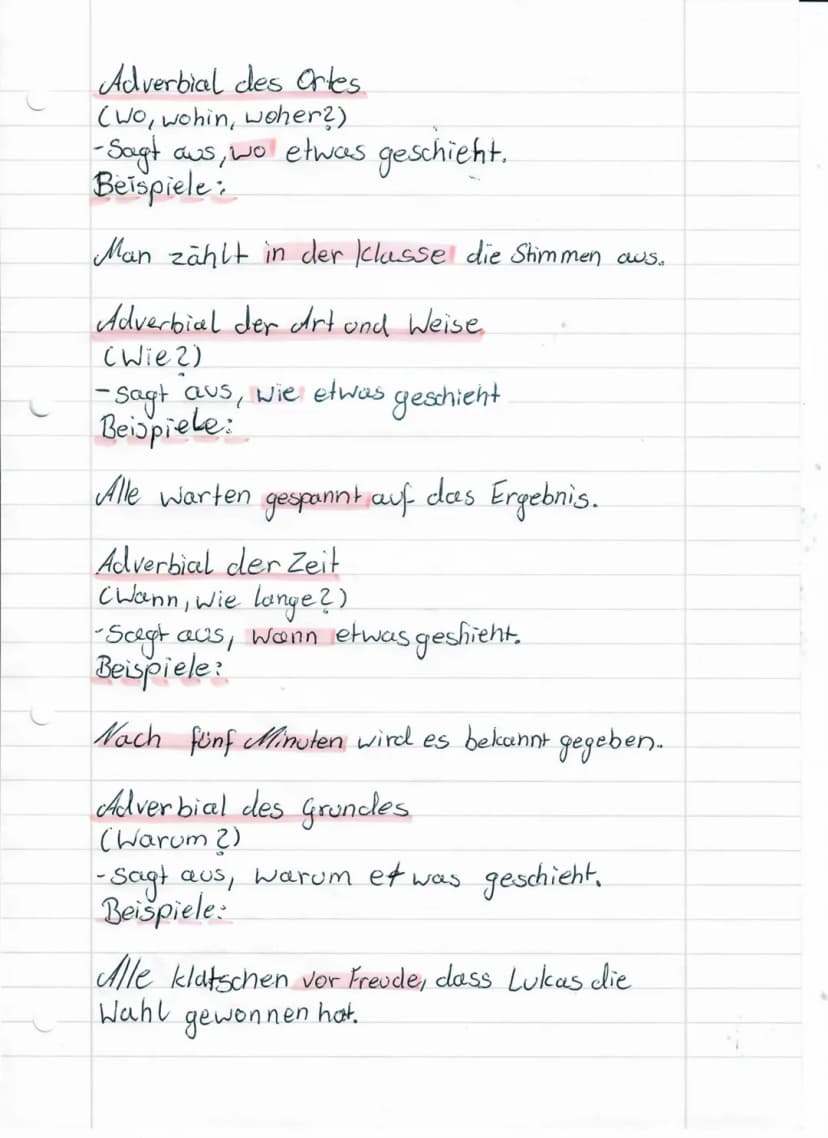 Adverbial des Ortes
(Wo, wohin, woher?)
-Sagt aus, wo etwas geschieht.
Beispiele:
Man zählt in der Klasse die Stimmen aus.
Adverbial der Art und Weise
(Wie?)
-sagt aus, wie etwas geschieht
Beispiele:
Alle warten gespannt auf das Ergebnis.
Adverbial der Zeit
(Wann, wie lange?)
-Sagt aus, wann etwas geshieht.
Beispiele:
Nach fünf Minuten wird es bekannt gegeben.
Adverbial des Grundes
(Warum?)
-sagt aus, warum etwas geschieht.
Beispiele:
Alle klatschen vor Freude, dass Lukas die
Wahl gewonnen hat.